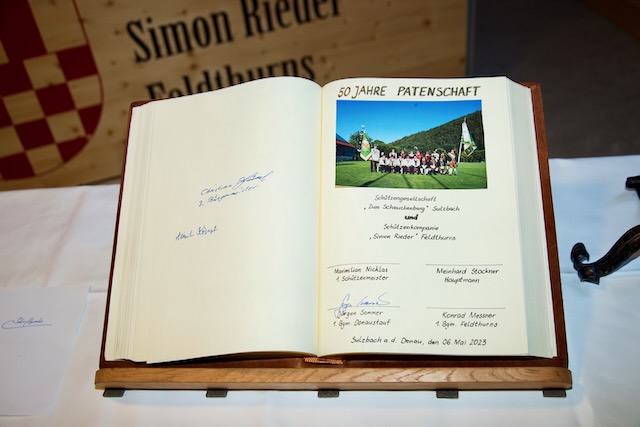 Simon Rieder
Feldthurns
2. Bürgermeister
50 JAHRE PATENSCHAFT
Schützengesellschaft
"Dan Schauckenburg" Sulzbach
und
Schützenkompanie
"Simon Rieder" Feldthurns
Maximilian Nicklas
1. Schützenmeister
Meinhard Stockner
Hauptmann
Jürgen Sommer
1. Bgm. Donaustauf
Konrad Messner
1. Bgm. Feldthurns
Sulzbach a.d. Donau, den 06. Mai 2023